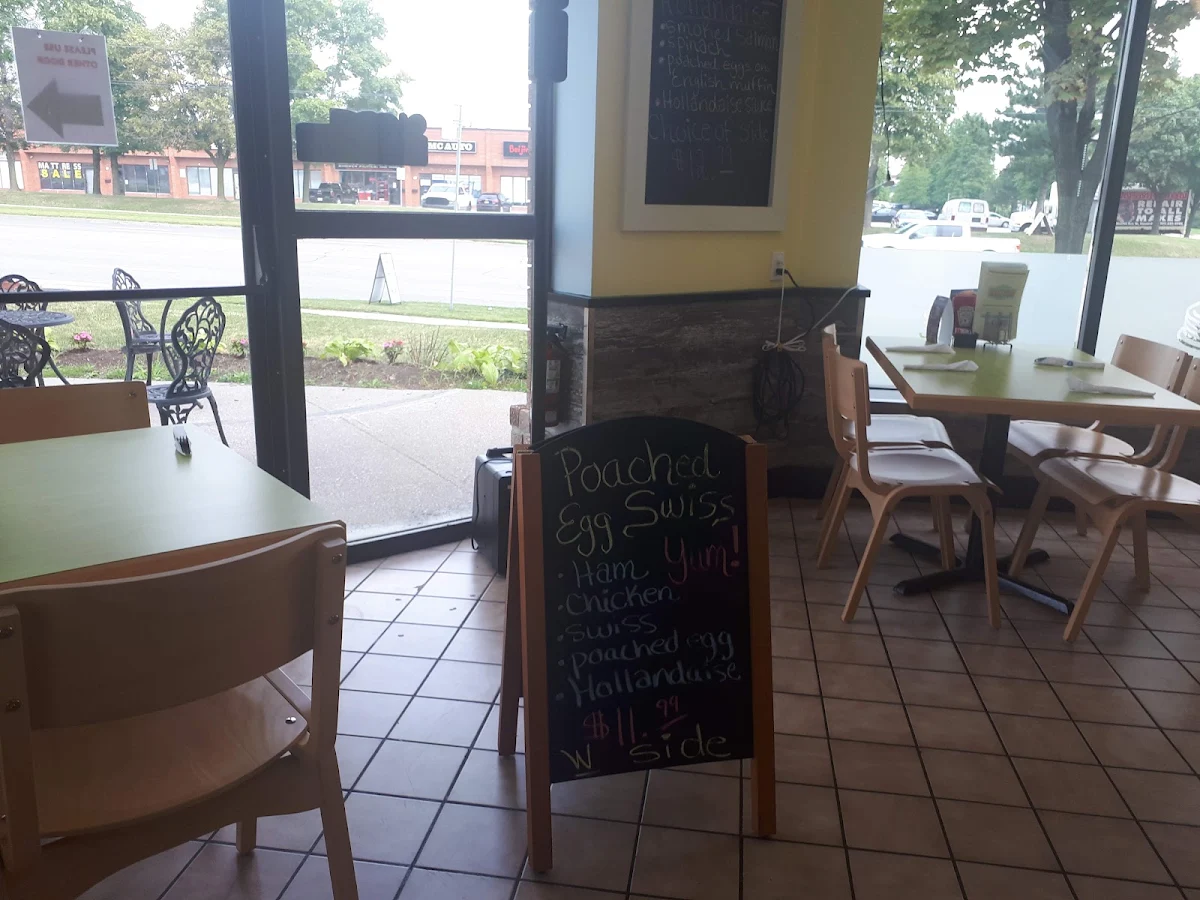 PLEASE USE
OTHER DOOR
MATTRESS
SALE
MC AUTO
smoked salmon
spinach
• poached eggs on
English muffin
• Hollandaise sauce
Choice of side
REPAIR
TO ALL
MAKES
Poached
Egg Swiss
• Ham Yum!
• Chicken
• Swiss
• poached egg
• Hollandaise
$11.99
W side